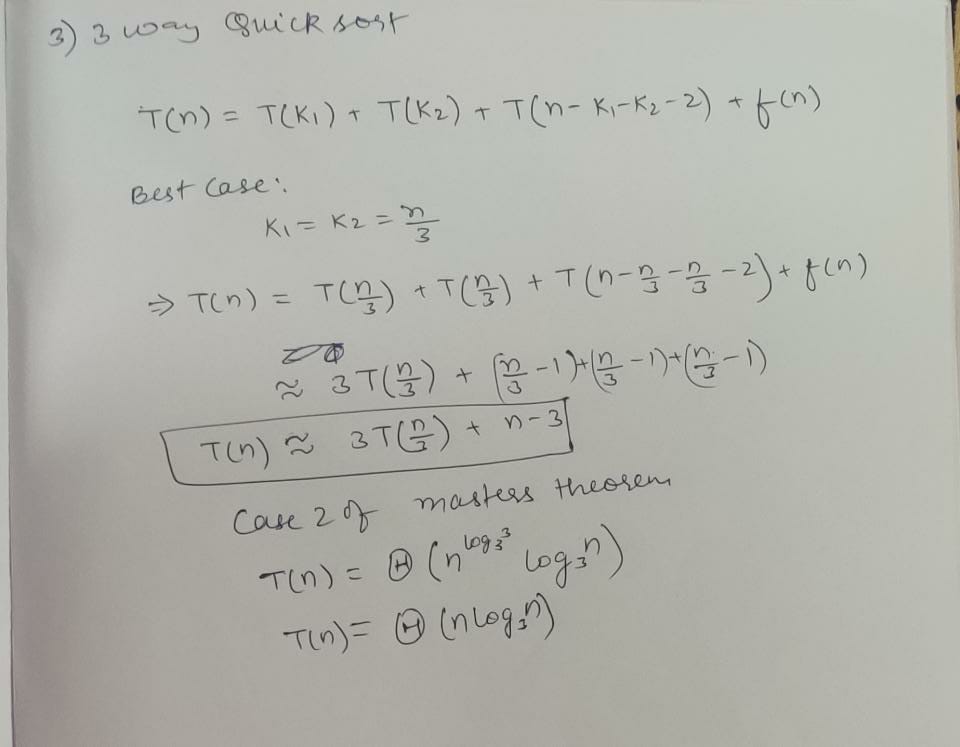 3) 3 way Quick sort
T(n) = T(K₁) + T(K₂) + T(n - K₁ - K₂ - 2) + f(n)
Best Case:
K₁ = K₂ = n/3
⇒ T(n) = T(n/3) + T(n/3) + T(n - n/3 - n/3 - 2) + f(n)
≈ 3T(n/3) + (n/3 - 1) + (n/3 - 1) + (n/3 - 1)
T(n) ≈ 3T(n/3) + n - 3
Case 2 of masters theorem
T(n) = Θ(n^(log₃3) log₃n)
T(n) = Θ(n log₃n)